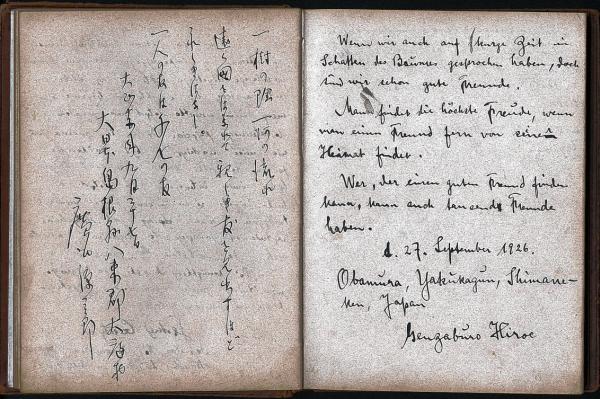 一樹の蔭一河の流れ
遠く國をはなれて親しき友を見出すほど
一人の友は千人の友
九月二十七日
大日本島根縣八束郡大庭村
Wenn wir auch auf kurze Zeit in
Schatten des Baumes gesprochen haben, doch
sind wir schon gute Freunde.
Mann findet die höchste Freude, wenn
man einen Freund fern von seiner
Heimat findet.
Wer, der einen guten Freund finden
kann, kann auch tausende Freunde
haben.
d. 27. September 1926.
Obamura, Yakukagun, Shimane-
ken, Japan
Genzaburo Hiroe